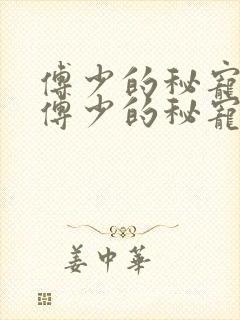 傅少的秘寵
傅少的秘寵
姜中華